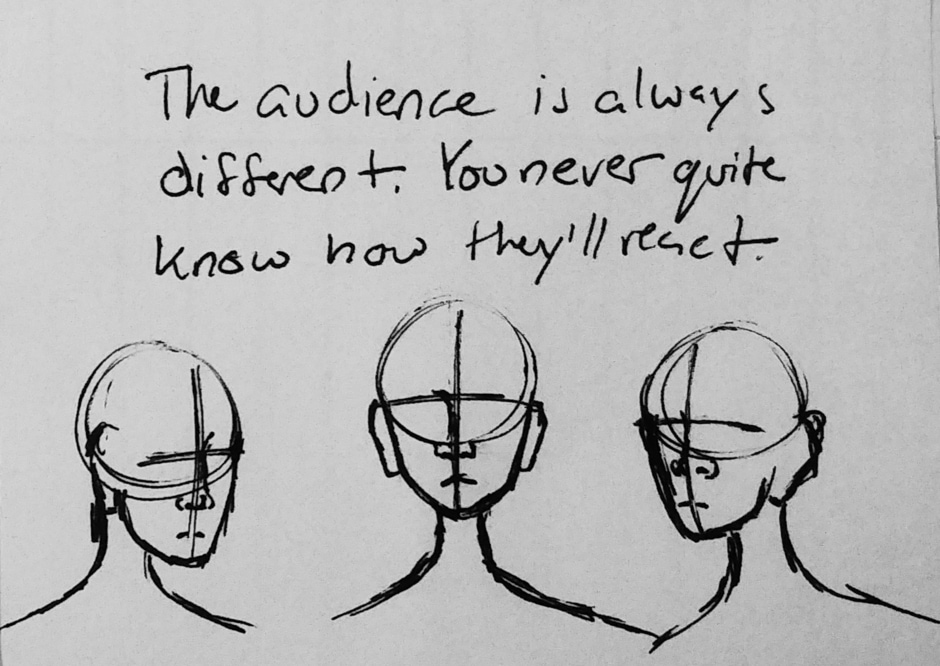 The audience is always
different. You never quite
know how they'll react.